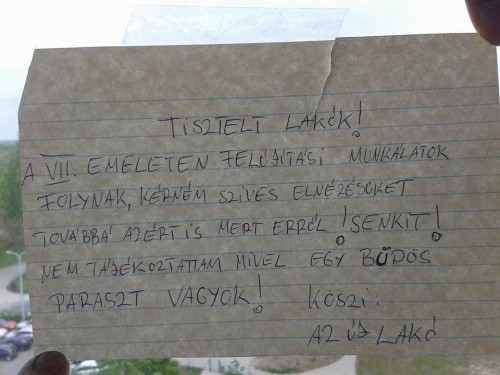 TISZTELT LAKÓK!
A VII. EMELETEN FELÚJÍTÁSI MUNKÁLATOK
FOLYNAK, KÉRNÉM SZÍVES ELNÉZÉSÜKET
TOVÁBBÁ AZÉRT IS MERT ERRŐL ! SENKIT !
NEM TÁJÉKOZTATTAM MIVEL EGY BÜDÖS
PARASZT VAGYOK! KÖSZI:
AZ ÚJ LAKÓ